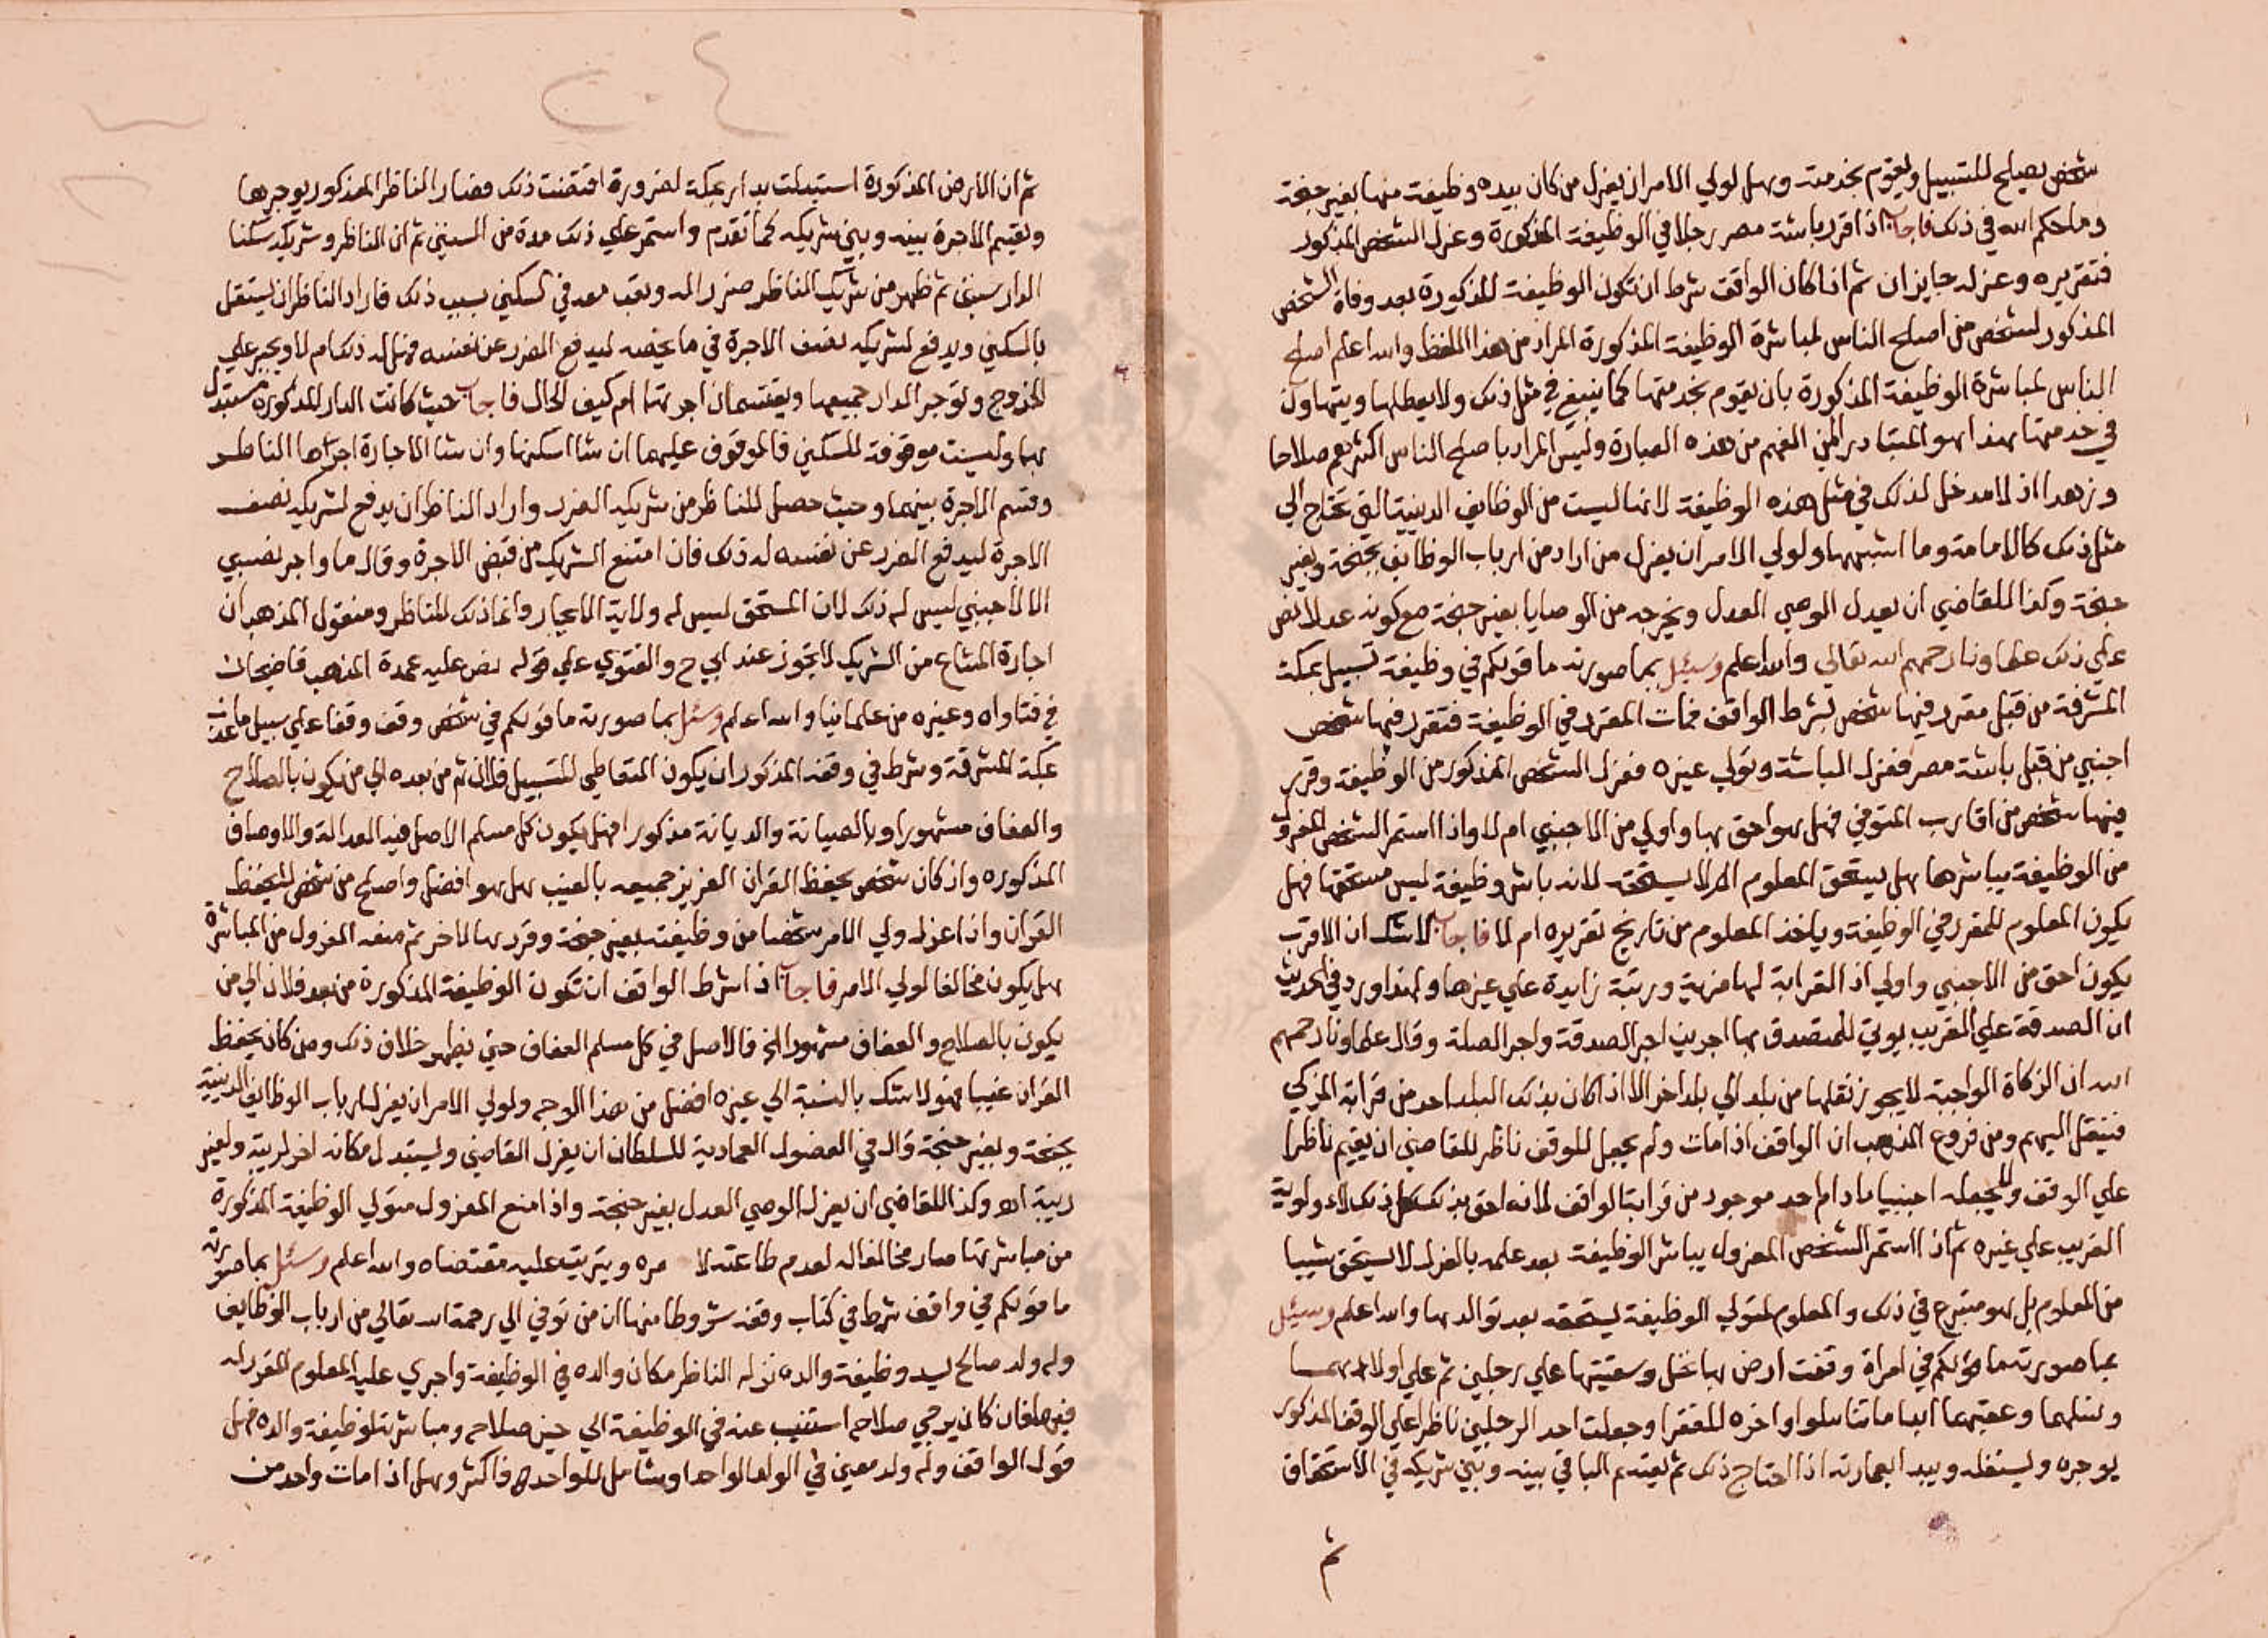 شخص يصلح للتسبيل ويقوم بخدمته وهل لولي الامر ان يعزل من كان بيده وظيفة منها بغير جنحة
وما حكم الله في ذلك فاجاب اذا قرر باشة مصر رجلا في الوظيفة المذكورة وعزل الشخص المذكور
فتقريره وعزله جايزان ثم اذا كان الواقف شرط ان تكون الوظيفة المذكورة بعد وفاة الشخص
المذكور لشخص من اصلح الناس لمباشرة الوظيفة المذكورة المراد من هذا اللفظ والله اعلم اصلح
الناس لمباشرة الوظيفة المذكورة بان يقوم بخدمتها كما ينبغي في مثل ذلك ولا يعطلها ويتهاون
في خدمتها هذا هو المتبادر الي الفهم من هذه العبارة وليس المراد باصلح الناس اكثرهم صلاحا
وزهدا اذ لا مدخل لذلك في مثل هذه الوظيفة لانها ليست من الوظايف الدينية التي تحتاج الي
مثل ذلك كالامامة وما اشبهها ولولي الامر ان يعزل من اراد من ارباب الوظايف بجنحة وبغير
جنحة وكذا للقاضي ان يعزل الوصي العدل ويخرجه من الوصايا بغير جنحة مع كونه عدلا نص
علي ذلك علماونا رحمهم الله تعالي والله اعلم وسئل بما صورته ما قولكم في وظيفة تسبيل بمكة
المشرفة من قبل مقرر فيها شخص بشرط الواقف فمات المقرر في الوظيفة فتقرر فيها شخص
اجنبي من قبل باشة مصر فعزل الباشة وتولي غيره فعزل الشخص المذكور من الوظيفة وقرر
فيها شخص من اقارب المتوفي فهل هو احق بها واولي من الاجنبي ام لا واذا استمر الشخص المعزول
من الوظيفة يباشرها هل يستحق المعلوم ام لا يستحقه لانه باشر وظيفة ليس مستحقها فهل
يكون المعلوم للمقرر في الوظيفة وياخذ المعلوم من تاريخ تقريره ام لا فاجاب لا شك ان الاقرب
يكون احق من الاجنبي واولي اذ القرابة لها مزية ورتبة زايدة علي غيرها ولهذا ورد في الحديث
ان الصدقة علي القريب يوتي للمتصدق بها اجرين اجر الصدقة واجر الصلة وقال علماونا رحمهم
الله ان الزكاة الواجبة لا يجوز نقلها من بلد الي بلد اخر الا اذا كان بذلك البلد احد من قرابة المزكي
فينقل اليهم ومن فروع المذهب ان الواقف اذا مات ولم يجعل للوقف ناظر للقاضي ان يقيم ناظرا
علي الوقف ولا يجعله اجنبيا مادام احد موجود من قرابة الواقف لانه احق بذلك كل ذلك لاولوية
القريب علي غيره ثم اذا استمر الشخص المعزول يباشر الوظيفة بعد علمه بالعزل لا يستحق شييا
من المعلوم بل هو متبرع في ذلك والمعلوم لمتولي الوظيفة يستحقه بعد توالده بها والله اعلم وسئل
بما صورته ما قولكم في امراة وقفت ارض بها نخل وسقيتها علي رجلين ثم علي اولادهما
ونسلهما وعقبهما ابدا ما تناسلوا واخره للفقرا وجعلت احد الرجلين ناظرا علي الوقف المذكور
يوجره ويستغله ويبدا بعمارته اذا احتاج ذلك ثم يقسم الباقي بينه وبين شريكه في الاستحقاق
ثم
ثم ان الارض المذكورة استبدلت بدار بمكة لضرورة اقتضت ذلك فصار الناظر المذكور يوجرها
ويقسم الاجرة بينه وبين شريكه كما تقدم واستمر علي ذلك مدة من السنين ثم ان الناظر وشريكه سكنا
الدار سنين ثم ظهر من شريك الناظر ضرر له وتعب معه في السكني بسبب ذلك فاراد الناظر ان يستقل
بالسكني ويدفع لشريكه نصف الاجرة في ما يخصه ليدفع الضرر عن نفسه فهل له ذلك ام لا ويجبر علي
الخروج وتوجر الدار جميعها ويقتسمان اجرتها ام كيف الحال فاجاب حيث كانت الدار المذكورة مستبدل
بها وليست موقوفة للسكني فالموقوف عليهما ان شا اسكنها وان شا الاجارة اجرها الناظر
وقسم الاجرة بينهما وحيث حصل للناظر من شريكه الضرر واراد الناظر ان يدفع لشريكه نصف
الاجرة ليدفع الضرر عن نفسه له ذلك فان امتنع الشريك من قبض الاجرة وقال ما واجر نصيبي
الا لاجنبي ليس له ذلك لان المستحق ليس له ولاية الايجار وانما ذلك للناظر ومنقول المذهب ان
اجارة المشاع من الشريك لا تجوز عند ابي ح والفتوي علي قوله نص عليه عمدة المذهب قاضيخان
في فتاواه وغيره من علماينا والله اعلم وسئل بما صورته ما قولكم في شخص وقف وقفا علي سبيل ما عذب
بمكة المشرفة وشرط في وقفه المذكور ان يكون المتعاطي للتسبيل فلان ثم من بعده الي من يكون بالصلاح
والعفاف مشهورا وبالصيانة والديانة مذكورا فهل يكون كل مسلم الاصل فيه العدالة والاوصاف
المذكوره واذ كان شخص يحفظ القران العزيز جميعه بالغيب هل هو افضل واصلح من شخص لا يحفظ
القران واذا عزل ولي الامر شخصا من وظيفته بغير جنحة وقرر بها لاخر ثم منعه المعزول من المباشرة
هل يكون مخالفا لولي الامر فاجاب اذا شرط الواقف ان تكون الوظيفة المذكورة من بعد فلان الي من
يكون بالصلاح والعفاف مشهورا الخ فالاصل في كل مسلم العفاف حتي يظهر خلاف ذلك ومن كان يحفظ
القران غيبا فهو لا شك بالنسبة الي غيره افضل من هذا الوجه ولولي الامر ان يعزل ارباب الوظايف الدينية
بجنحة وبغير جنحة قال في الفصول العمادية للسلطان ان يعزل القاضي ويستبدل مكانه اخر لريبة ولغير
ريبة اه وكذا للقاضي ان يعزل الوصي العدل بغير جنحة واذا منع المعزول متولي الوظيفة المذكورة
من مباشرتها صار مخالفا له لعدم طاعته لا مره ويترتب عليه مقتضاه والله اعلم وسئل بما صورته
ما قولكم في واقف شرط في كتاب وقفه شروطا منها ان من توفي الي رحمة الله تعالي من ارباب الوظايف
وله ولد صالح ليد وظيفة والده نزله الناظر مكان والده في الوظيفة واجري عليه المعلوم المقرر له
فيها فان كان يرجي صلاحه استنيب عنه في الوظيفة الي حين صلاحه ومباشرته لوظيفة والده فهل
قول الواقف وله ولد معين في الولد الواحد او شامل للواحد فاكثر وهل اذا مات واحد من